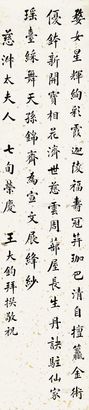 婺女星輝絢彩霞迦陵福壽冠笄珈巴清自擅籯金術
優鉢新開寶相花濟世慈雲周華屋長生丹訣駐仙家
瑤臺綵舞天孫錦齊為宣文展絳紗
慈淋太夫人 七旬榮慶 王大鈞拜撰敬祝